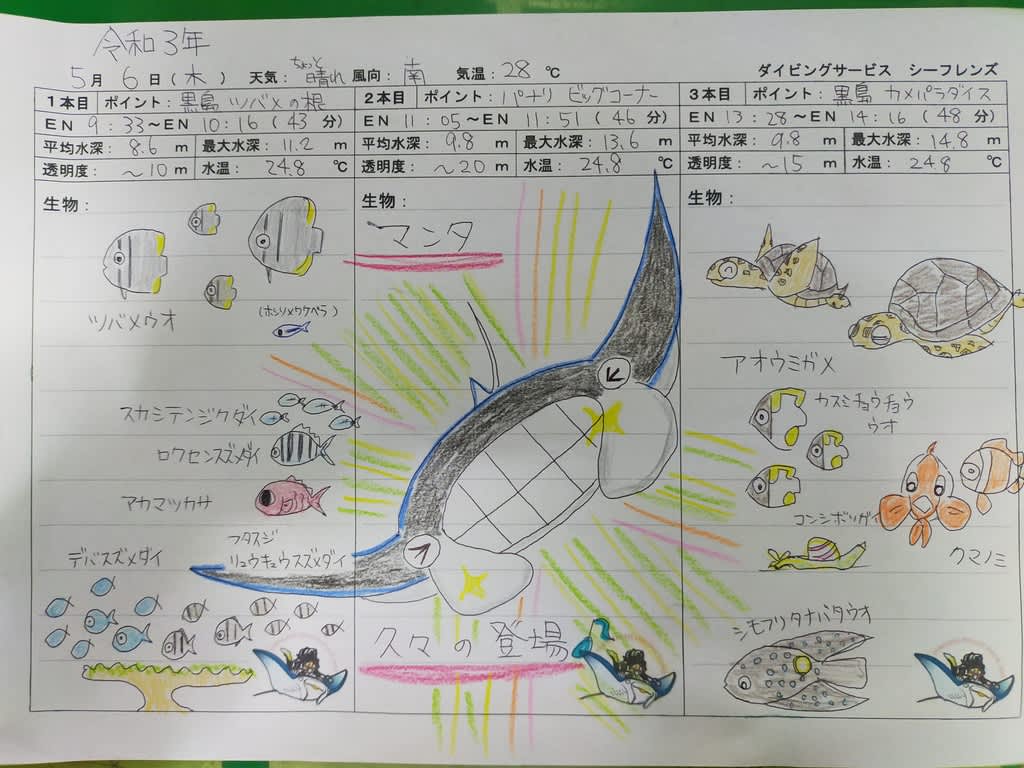 令和3年
5月 6日(木) 天気:ちょっと晴れ 風向:南 気温:28 ℃ ダイビングサービス シーフレンズ
1本目 ポイント:黒島 ツバメの根
EN 9:33～EN 10:16(43 分)
平均水深: 8.6 m 最大水深: 11.2 m
透明度: ～10 m 水温: 24.8 ℃
生物:
ツバメウオ
(ホシソメワケベラ)
スカシテンジクダイ
ロクセンスズメダイ
アカマツカサ
デバスズメダイ
フタスジ
リュウキュウスズメダイ
2本目 ポイント:パナリ ビッグコーナー
EN 11:05～EN 11:51(46 分)
平均水深: 9.8 m 最大水深: 13.6 m
透明度: ～20 m 水温: 24.8 ℃
生物:
マンタ
久々の登場
3本目 ポイント:黒島 カメパラダイス
EN 13:28～EN 14:16(48 分)
平均水深: 9.8 m 最大水深: 14.8 m
透明度: ～15 m 水温: 24.8 ℃
生物:
アオウミガメ
カスミチョウチョウ
ウオ
コンシボリガイ
クマノミ
シモフリタナバタウオ